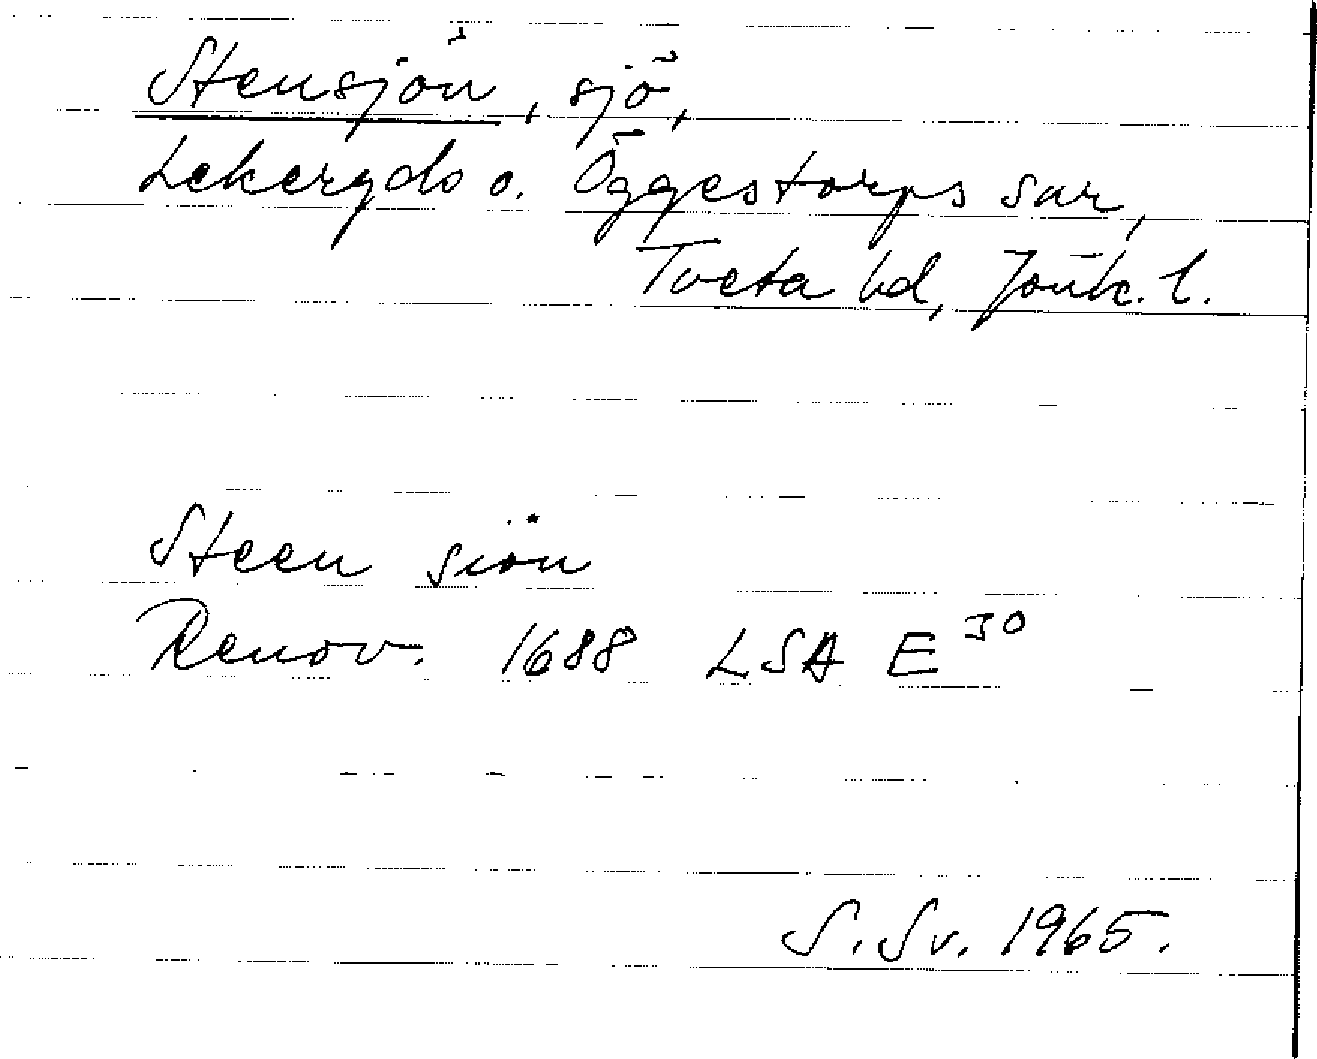 Stensjön, sjö,
Lekeryds o. Öggestorps sar,
Tveta hd, Jönk. l.
Steen siön
Renov. 1688 LSA E 30
S. Sv. 1965.